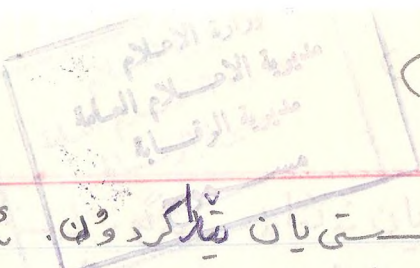 وزارة الاعلام
مديرية الاعلام العامة
مديرية الرقابة
ستی یان تێدا کردوون.